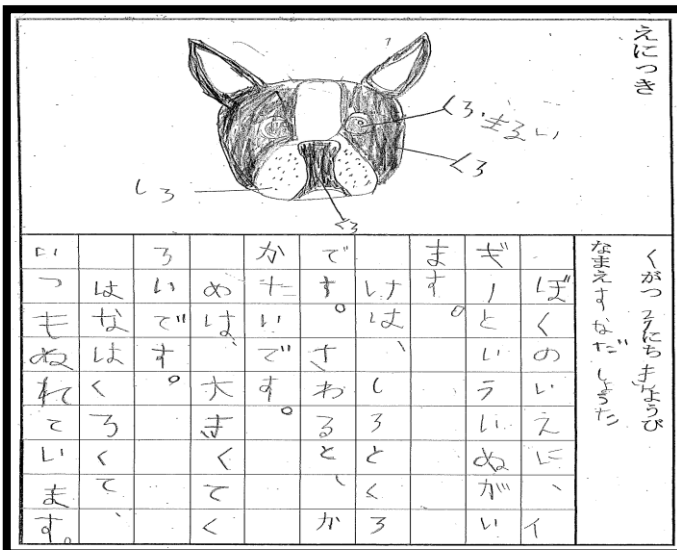 えにっき
くろ、まるい
くろ
くろ
しろ
くがつ 27にち ようび
なまえ すなだ しょうた
ぼくのいえに、イ
ギーといういぬがい
ます。
けは、しろとくろ
です。さわると、か
かたいです。
めは、大きくてく
ろいです。
はなはくろくて、
いつもぬれています。